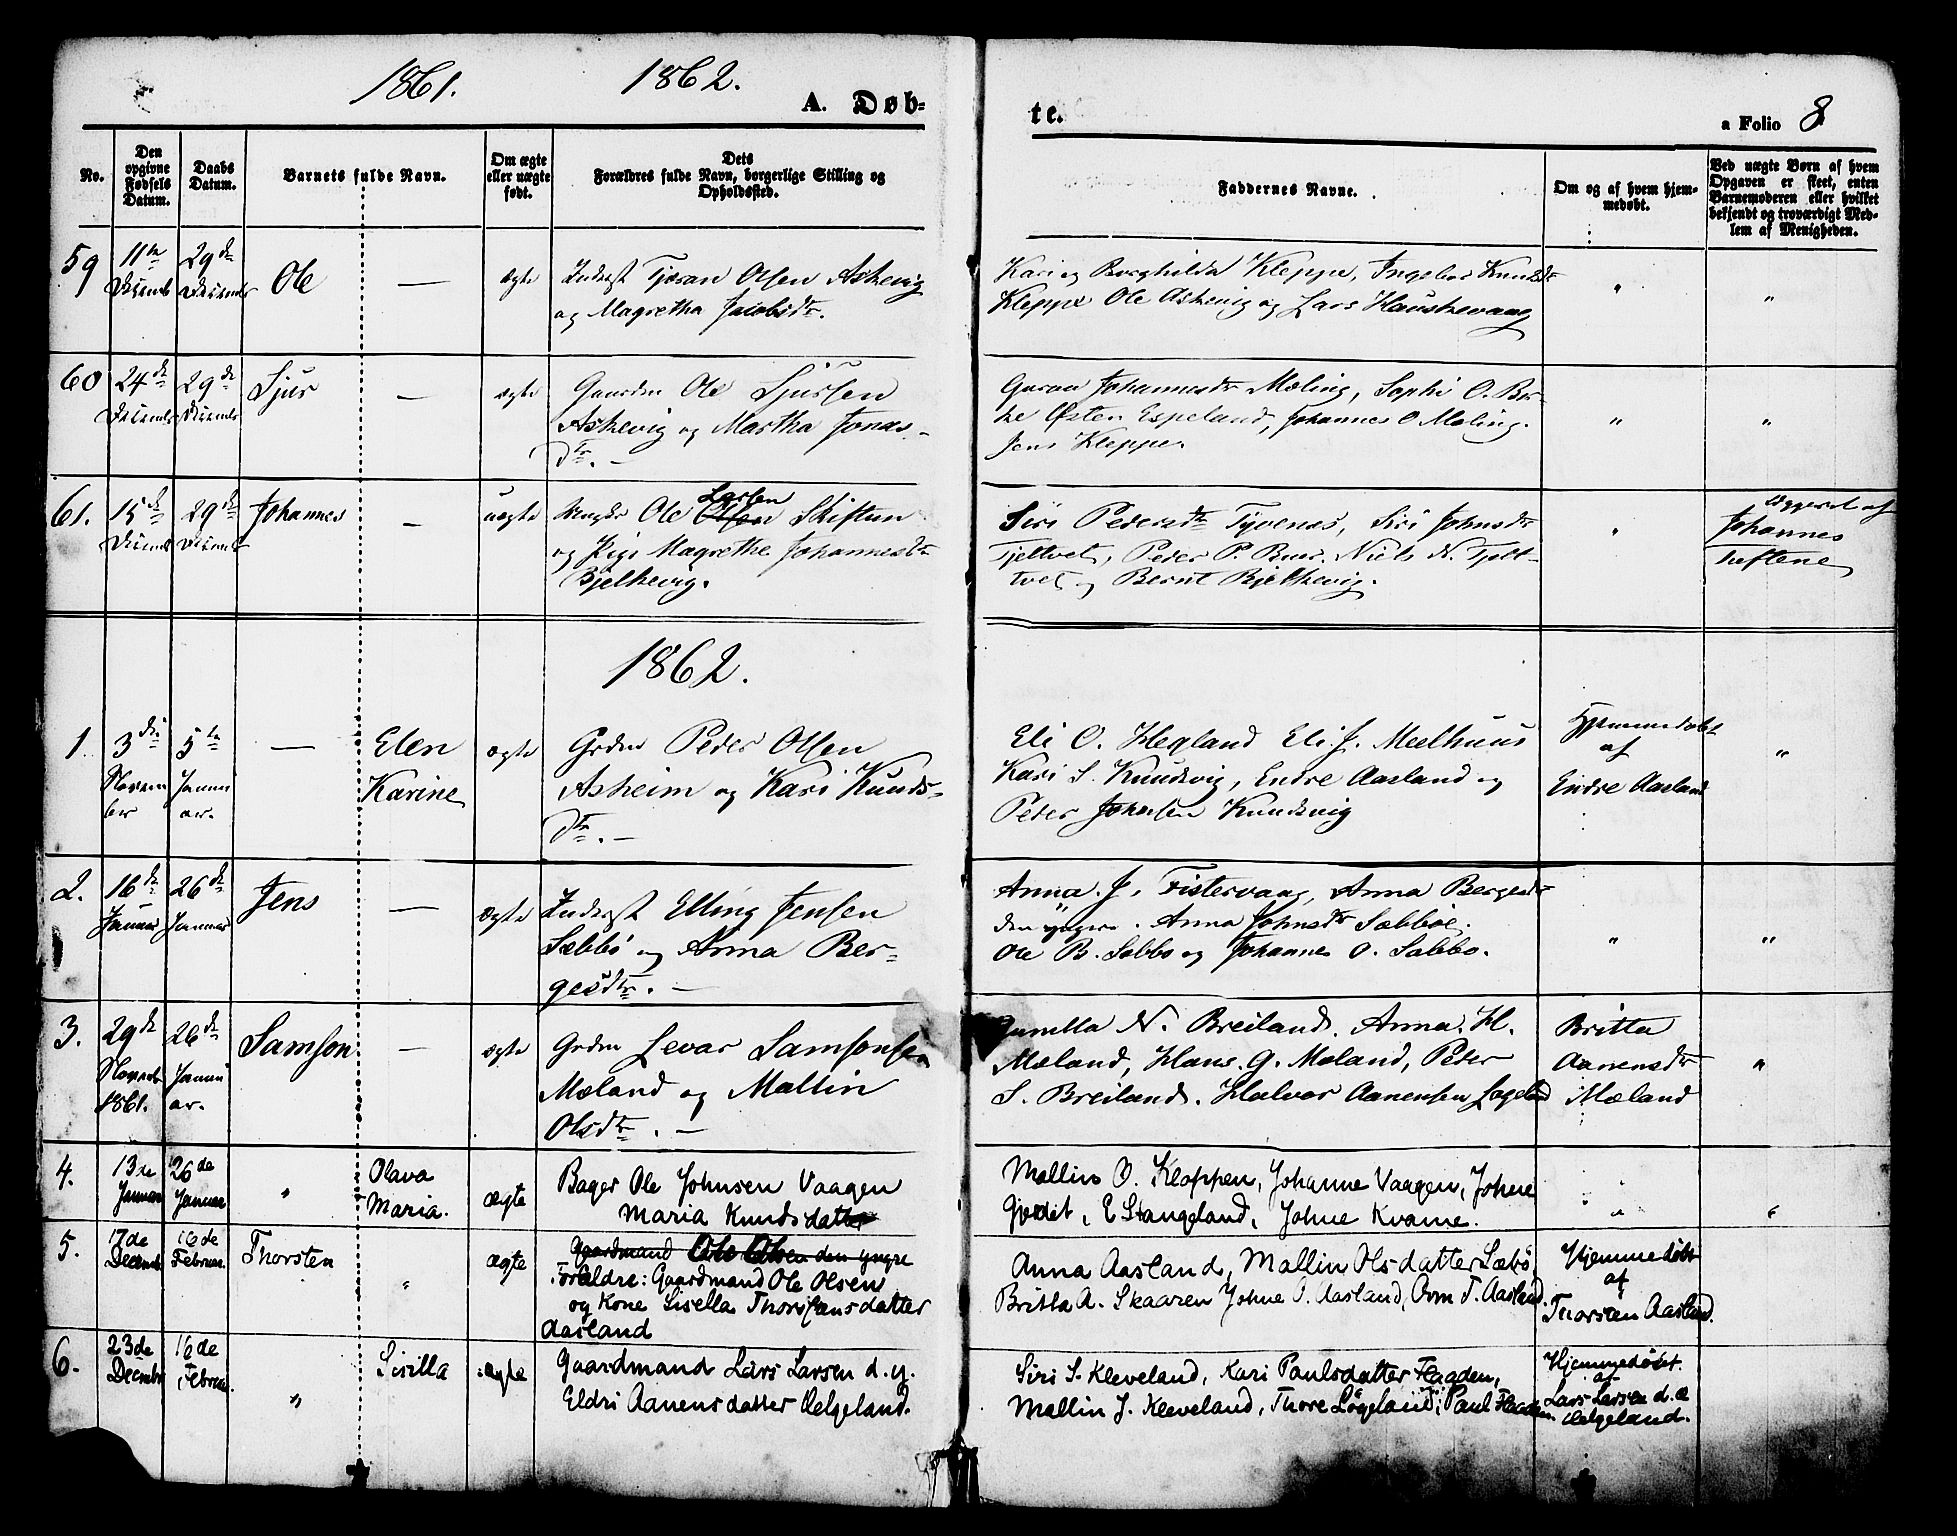 1861. 1862.
A. Døb-
te.
a Folio 8
No.
Den opgivne Fødsels Datum.
Daabs Datum.
Barnets fulde Navn.
Om ægte eller uægte født.
Dets Forældres fulde Navn, borgerlige Stilling og Opholdssted.
Faddernes Navne.
Om og af hvem hjemmedøbt.
Ved uægte Børn af hvem Opgaven er skeet, enten Barnemoderen eller hvilket bekjendt og troværdigt Medlem af Menigheden.
59 11te 29de
Decemb Decemb
Ole — ægte
Inderst Tjøran Olsen Askevig
og Magretha Jacobsdtr.
Kari og Borghilda Kleppe, Ingebor Knudsdtr
Kleppe Ole Askevig og Lars Haushevaag
" "
60 24de 29de
Decemb Decemb
Sjur — ægte
Gaardm Ole Sjursen
Askevig og Martha Jonas-
dtr. —
Guran Johannesdtr Mæling, Sophi O. Bør-
ke Østen Espeland, Johannes O Mæling.
Jens Kleppe.
" "
61. 15de 29de
Decemb Decemb
Johannes — uægte
Ungkr Ole Olsen Larsen Skiftun
og Pige Magrethe Johannesdtr
Bjelkevig.
Siri Pedersdtr Tyvenæs, Siri Johnsdtr
Tjeltvet, Peder P. Buer. Niels N. Tjelt-
tvet og Bernt Bjelkevig.
"
Opgivet af
Johannes
Heftene
1862.
1. 3die 5te
Novem
ber
Janu
ar.
— Elen
Karine
ægte
Grdm Peder Olsen
Asheim og Kari Knuds-
dtr. —
Eli O. Hegland Eli J. Meelhuus
Kari S. Knudsvig, Endre Aasland og
Peder Johnsen Knudsvig
Hjemmedøbt
af
Endre Aasland
"
2. 16de 26de
Januar Januar
Jens — ægte
Inderst Elling Jensen
Sæbbø og Anna Ber-
gesdtr. —
Anna J. Fistervaag, Anna Bergesdtr
den yngre. Anna Johnsdtr Sæbbøe.
Ole B. Sæbbø og Johannes O. Sæbbø.
" "
3. 29de 26de
Novemb
1861.
Janu
ar.
Samson — ægte
Grdm Levar Samsonsen
Mæland og Mallin
Olsdtr. —
Gunilla N. Breiland. Anna. H.
Mæland, Hans. G. Mæland, Peder
S. Breiland. Halvor Aanensen Løgeland
Britta
Aanensdtr
Mæland
"
4. 13de 26de
Januar Januar
" Olava
Maria.
ægte
Bager Ole Johnsen Vaagen
Maria Knudsdatter
Mallin O. Kloppen, Johanne Vaagen, Johne
Gjedet, E Stangeland, Johne Kvame.
" "
5. 17de 16de
Decemb Februar
Thorsten " ægte
Gaardmand Ole Olsen den yngre
Forældre: Gaardmand Ole Olsen
og Kone Sisella Thorsensdatter
Aasland
Anna Aasland, Mallin Olsdatter Sæbø,
Britta A. Skaaren Johne O. Aasland, Orm T. Aasland.
Hjemmedøbt
af
Thorsten Aasland.
6. 23de 16de
Decemb Februar.
" Sisilla ægte
Gaardmand Lars Larsen d. y.
Eldri Aanensdatter Helgeland.
Siri S. Kleveland, Kari Paulsdatter Haagden,
Mallin J. Kleveland, Thore Løgeland, Paul Haagden.
Hjemmedøbt.
af
Lars Larsen d. æ
Helgeland.